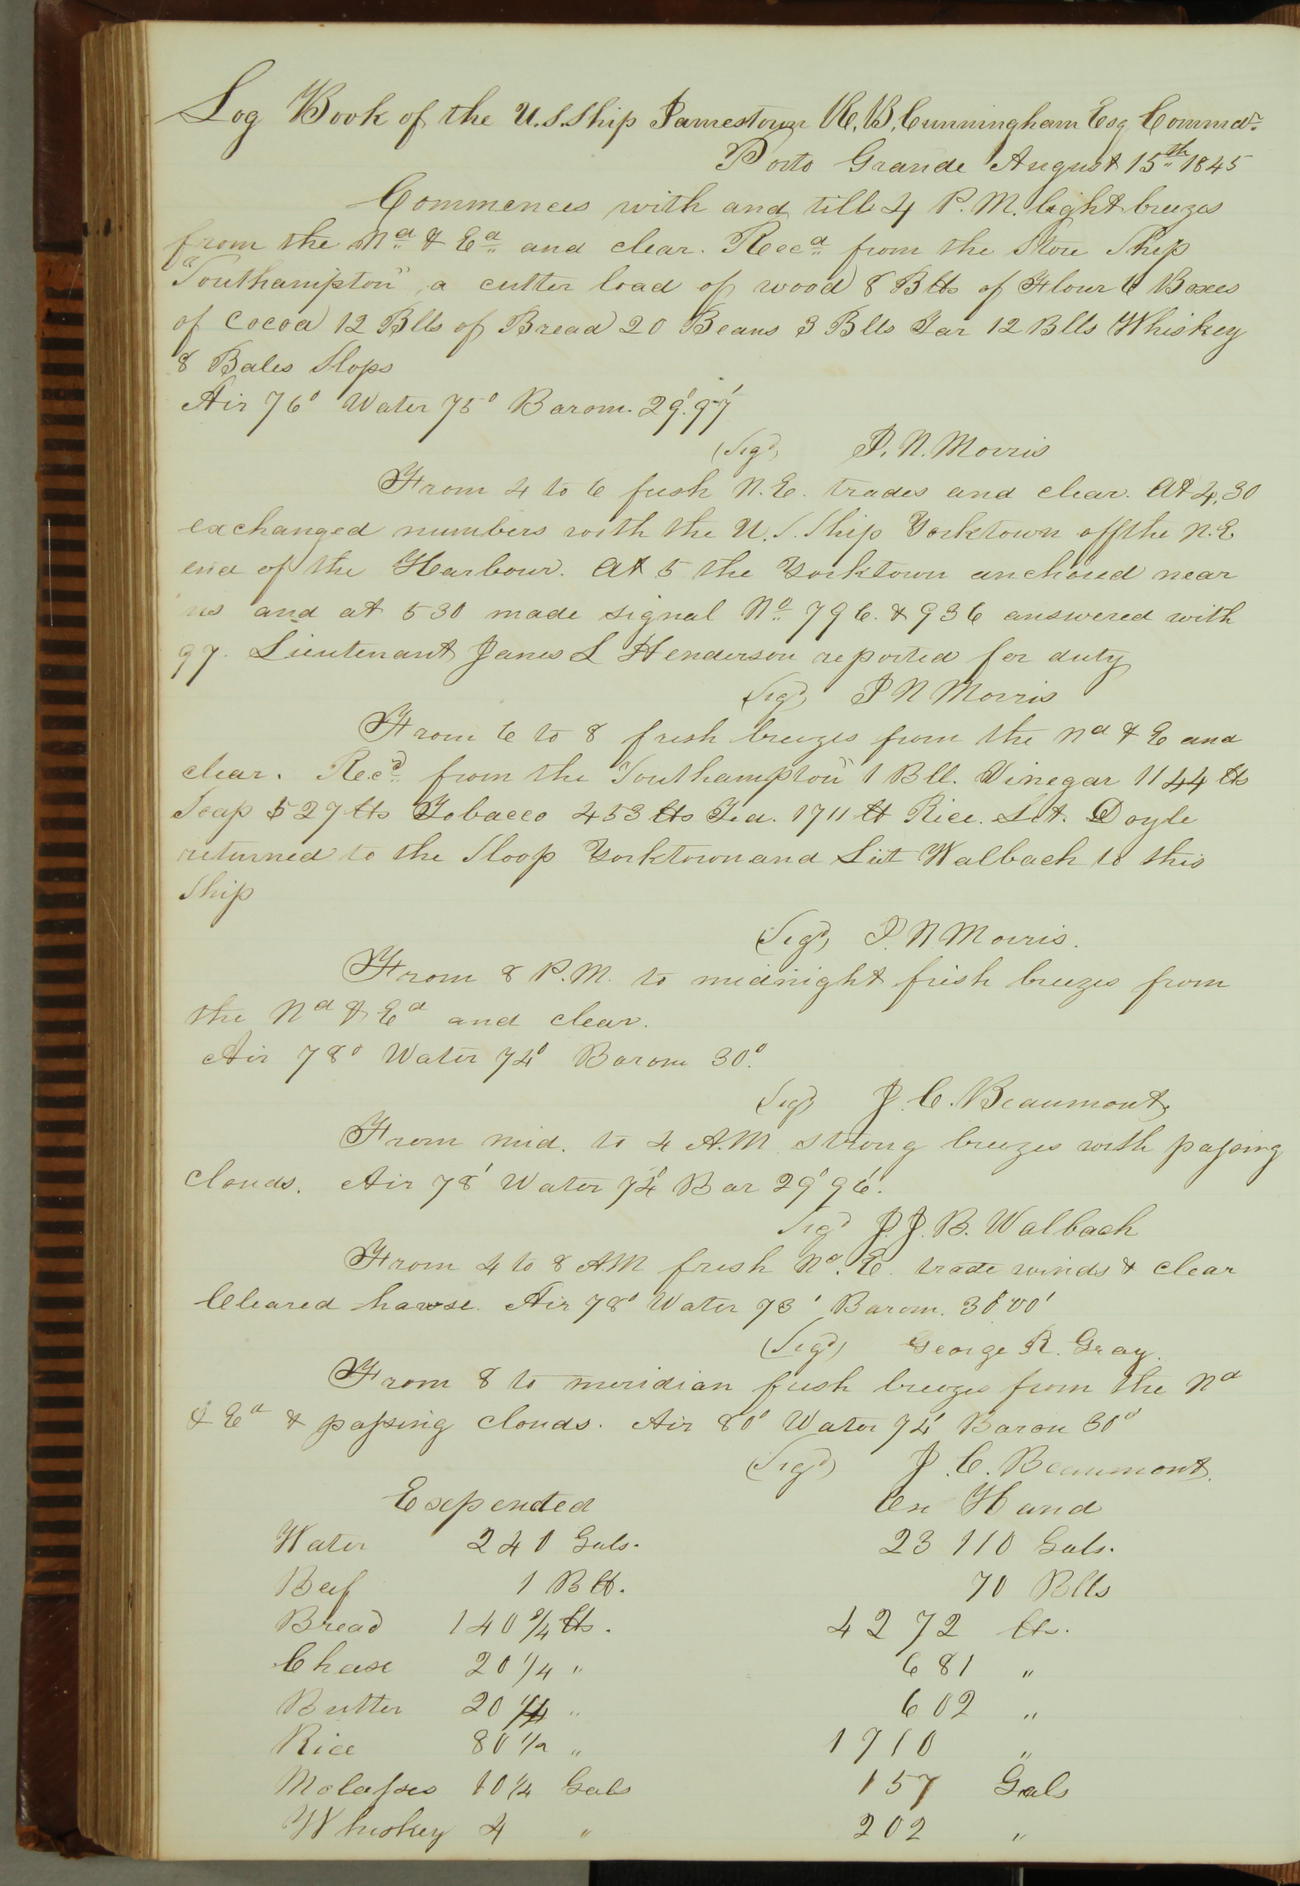 Log Book of the U.S. Ship Jamestown R. B. Cunningham Esq Commdr.
Porto Grande August 15th 1845
Commences with and till 4 P.M. light breezes
from the Nd & Ed and clear. Recd from the Store Ship
"Southampton", a cutter load of wood 8 Blls of Flour 6 Boxes
of Cocoa 12 Blls of Bread 20 Beans 3 Blls Tar 12 Blls Whiskey
8 Bales Slops
Air 76° Water 75° Barom. 29.97
(Sigd) P. N. Morris
From 4 to 6 fresh N.E. trades and clear. At 4,30
exchanged numbers with the U.S. Ship Yorktown off the N.E
end of the Harbour. At 5 the Yorktown anchored near
us and at 5 30 made signal No. 796. & 936 answered with
97. Lieutenant James L Henderson reported for duty
(Sigd) P N Morris
From 6 to 8 fresh breezes from the Nd & E and
clear. Recd from the "Southampton" 1 Bll. Vinegar 1144 lbs
Soap 527 lbs Tobacco 453 lbs Tea. 1711 lb Rice. Lt. Doyle
returned to the Sloop Yorktown and Lieut Walbach to this
Ship
(Sigd) P. N Morris.
From 8 P.M. to midnight fresh breezes from
the Nd & Ed and clear.
Air 78° Water 74° Barom 30°.
(Sigd) J. C. Beaumont
From mid. to 4 A.M. strong breezes with passing
clouds. Air 78° Water 74° Bar 29°96'.
Sigd J. J. B. Walbach
From 4 to 8 AM fresh Nd. E. trade winds & clear
Cleared hawse. Air 78° Water 73° Barom. 30°00'
(Sigd) George R. Gray.
From 8 to meridian fresh breezes from the Nd
& Ed & passing clouds. Air 80° Water 74° Barom 30°
(Sigd) J. C. Beaumont.
Expended On Hand
Water 240 Gals. 23110 Gals.
Beef 1 Bll. 70 Blls
Bread 140 3/4 lbs. 4272 lbs.
Chease 20 1/4 " 681 "
Butter 20 1/4 " 602 "
Rice 80 1/2 " 1710 "
Molasses 10 1/4 Gals 157 Gals
Whiskey 4 " 202 "